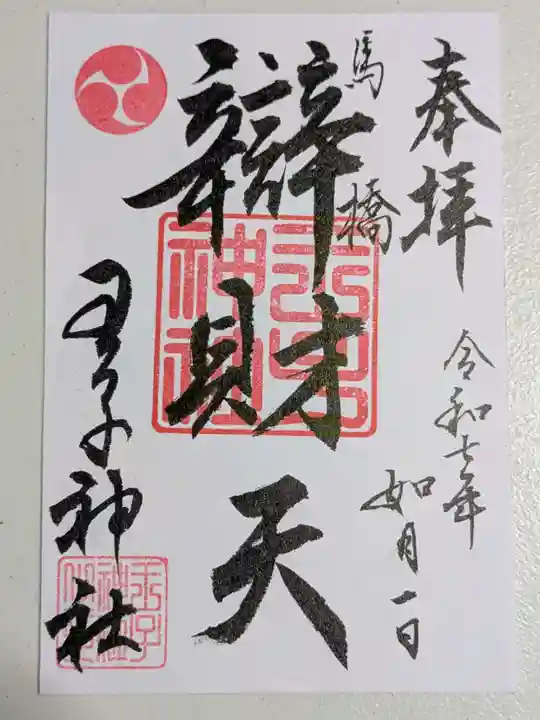 奉拝
令和七年
如月一日
馬橋
辯財天
王子神社
王子神社